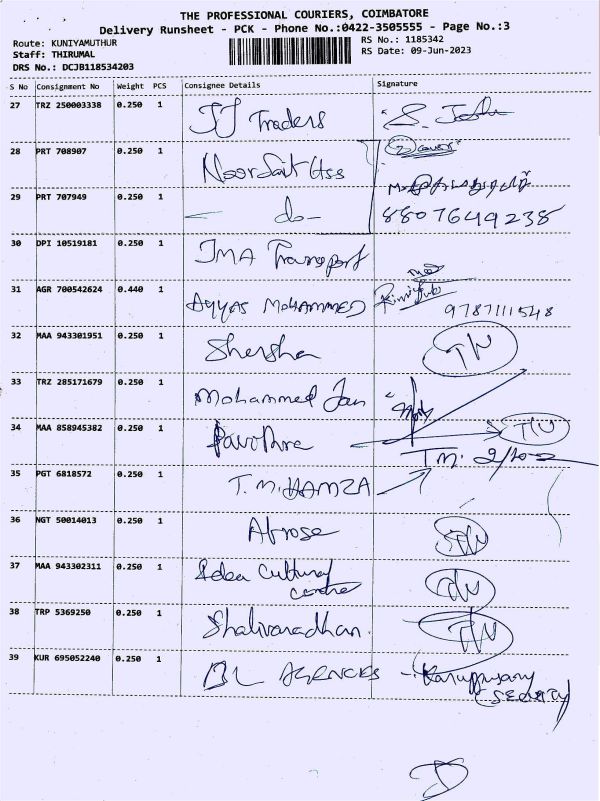 THE PROFESSIONAL COURIERS, COIMBATORE
Delivery Runsheet - PCK - Phone No.:0422-3505555 - Page No.:3
Route: KUNIYAMUTHUR
RS No.: 1185342
Staff: THIRUMAL
RS Date: 09-Jun-2023
DRS No.: DCJB118534203
S No Consignment No Weight PCS Consignee Details Signature
27 TRZ 250003338 0.250 1 JJ Traders
28 PRT 708907 0.250 1
29 PRT 707949 0.250 1 - do - 8807649238
30 DPI 10519181 0.250 1 JMA Transport
31 AGR 700542624 0.440 1 AYYAS MOHAMMED 9787111548
32 MAA 943301951 0.250 1 Shersha
33 TRZ 285171679 0.250 1 Mohammed Jan
34 MAA 858945382 0.250 1
35 PGT 6818572 0.250 1 T.M.HAMZA
36 NGT 50014013 0.250 1 Abrose
37 MAA 943302311 0.250 1 Cultural
centre
38 TRP 5369250 0.250 1 Shalivaradhan.
39 KUR 695052240 0.250 1 BL AGENCIES